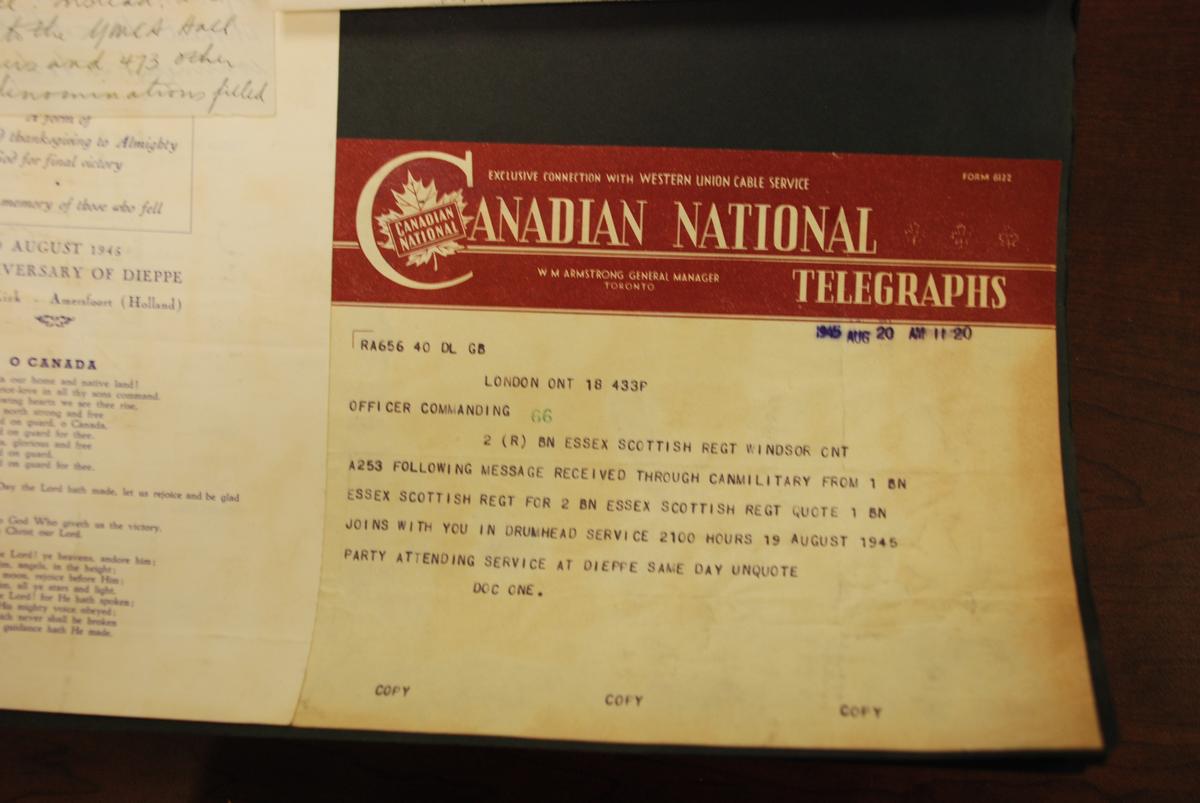 to the YMCA Hall
and 473 other
denominations filled
A form of
thanksgiving to Almighty
God for final victory
memory of those who fell
AUGUST 1945
ANNIVERSARY OF DIEPPE
Kirk - Amersfoort (Holland)
O CANADA
our home and native land!
love in all thy sons command.
hearts we see thee rise,
north strong and free
on guard, o Canada,
on guard for thee.
glorious and free
on guard.
on guard for thee.
Day the Lord hath made, let us rejoice and be glad
God Who giveth us the victory.
Christ our Lord.
Lord! ye heavens, andore him;
angels, in the height;
moon, rejoice before Him;
all ye stars and light.
Lord! for He hath spoken;
His mighty voice obeyed;
never shall be broken
guidance hath He made.
EXCLUSIVE CONNECTION WITH WESTERN UNION CABLE SERVICE
FORM 6122
CANADIAN NATIONAL
CANADIAN NATIONAL
W M ARMSTRONG GENERAL MANAGER
TORONTO
TELEGRAPHS
1945 AUG 20 AM 11 20
RA656 40 DL GB
LONDON ONT 18 433P
OFFICER COMMANDING 66
2 (R) BN ESSEX SCOTTISH REGT WINDSOR ONT
A253 FOLLOWING MESSAGE RECEIVED THROUGH CANMILITARY FROM 1 BN
ESSEX SCOTTISH REGT FOR 2 BN ESSEX SCOTTISH REGT QUOTE 1 BN
JOINS WITH YOU IN DRUMHEAD SERVICE 2100 HOURS 19 AUGUST 1945
PARTY ATTENDING SERVICE AT DIEPPE SAME DAY UNQUOTE
DOC ONE.
COPY COPY COPY